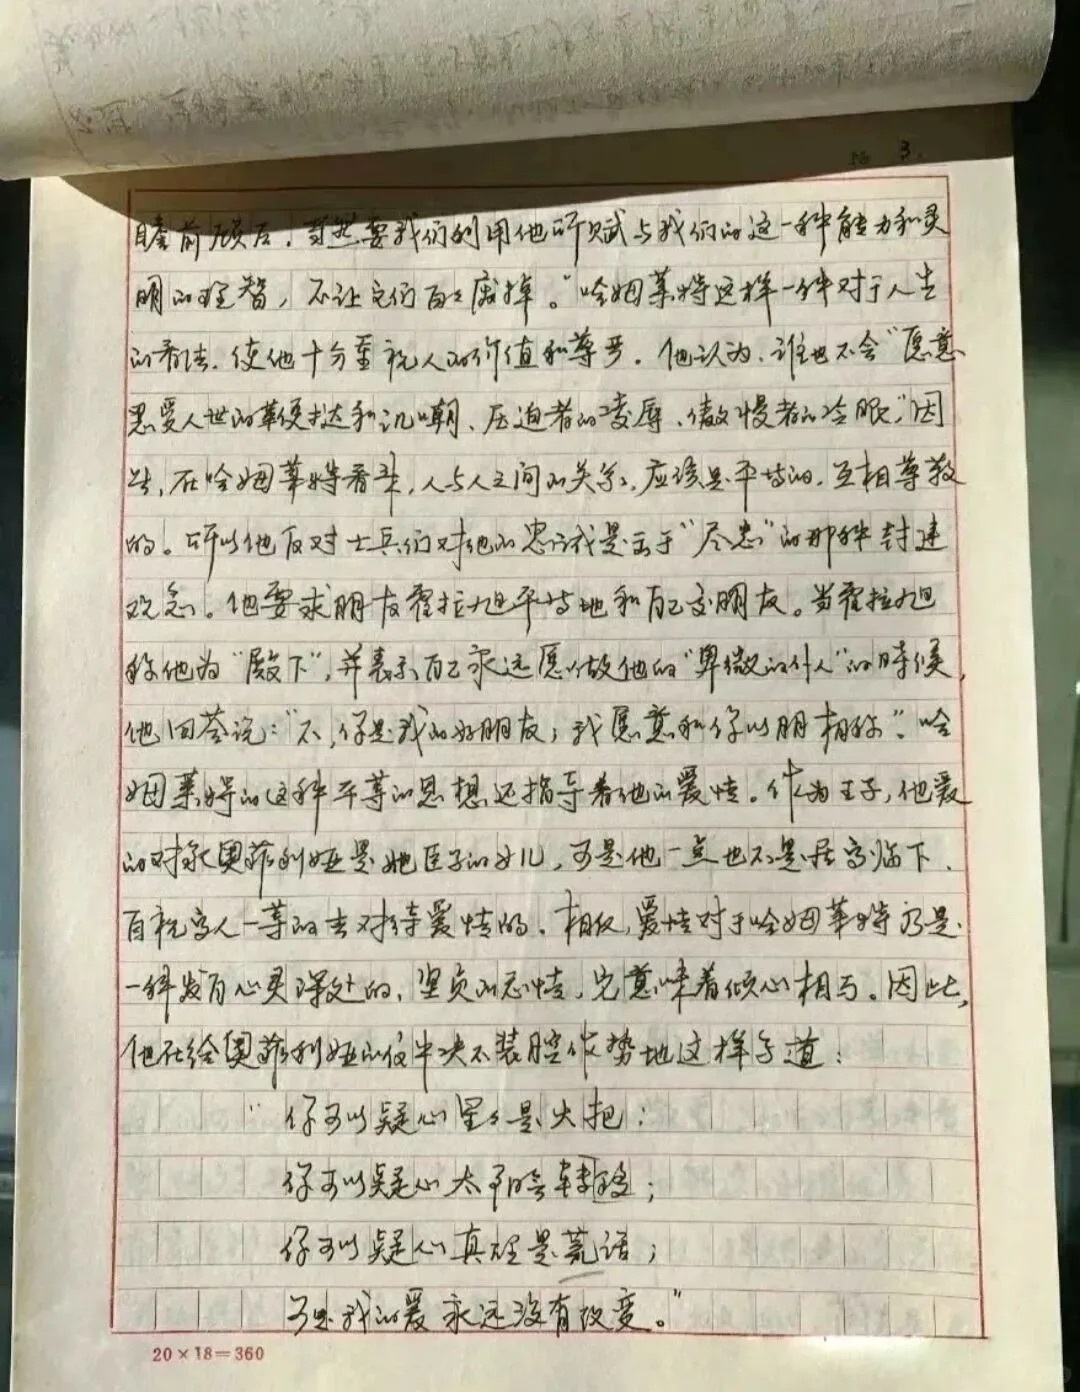 3.
瞻前顾后，当然要我们利用他所赋与我们的这一种能力和灵
明的理智，不让它们白白废掉。"哈姆莱特这样一种对于人生
的看法，使他十分重视人的价值和尊严。他认为，谁也不会"愿意
忍受人世的鞭挞和讥嘲、压迫者的凌辱、傲慢者的冷眼"，因
此，在哈姆莱特看来，人与人之间的关系，应该是平等的，互相尊敬
的。所以他反对士兵们对他的忠诚是出于"尽忠"的那种封建
观念。他要求朋友霍拉旭平等地和自己交朋友。当霍拉旭
称他为"殿下"，并表示自己永远愿做他的"卑微的仆人"的时候，
他回答说："不，你是我的好朋友；我愿意和你以朋相称"。哈
姆莱特的这种平等的思想还指导着他的爱情。作为王子，他爱
的对象奥菲利娅是她臣子的女儿，可是他一点也不是居高临下、
自视高人一等的去对待爱情的。相反，爱情对于哈姆莱特乃是
一种发自心灵深处的，坚贞的恋情，它意味着倾心相与。因此，
他在给奥菲利娅的信中决不装腔作势地这样写道：
"你可以疑心星星是火把；
你可以疑心太阳会转移；
你可以疑心真理是荒话；
可是我的爱永远没有改变。"
20×18=360